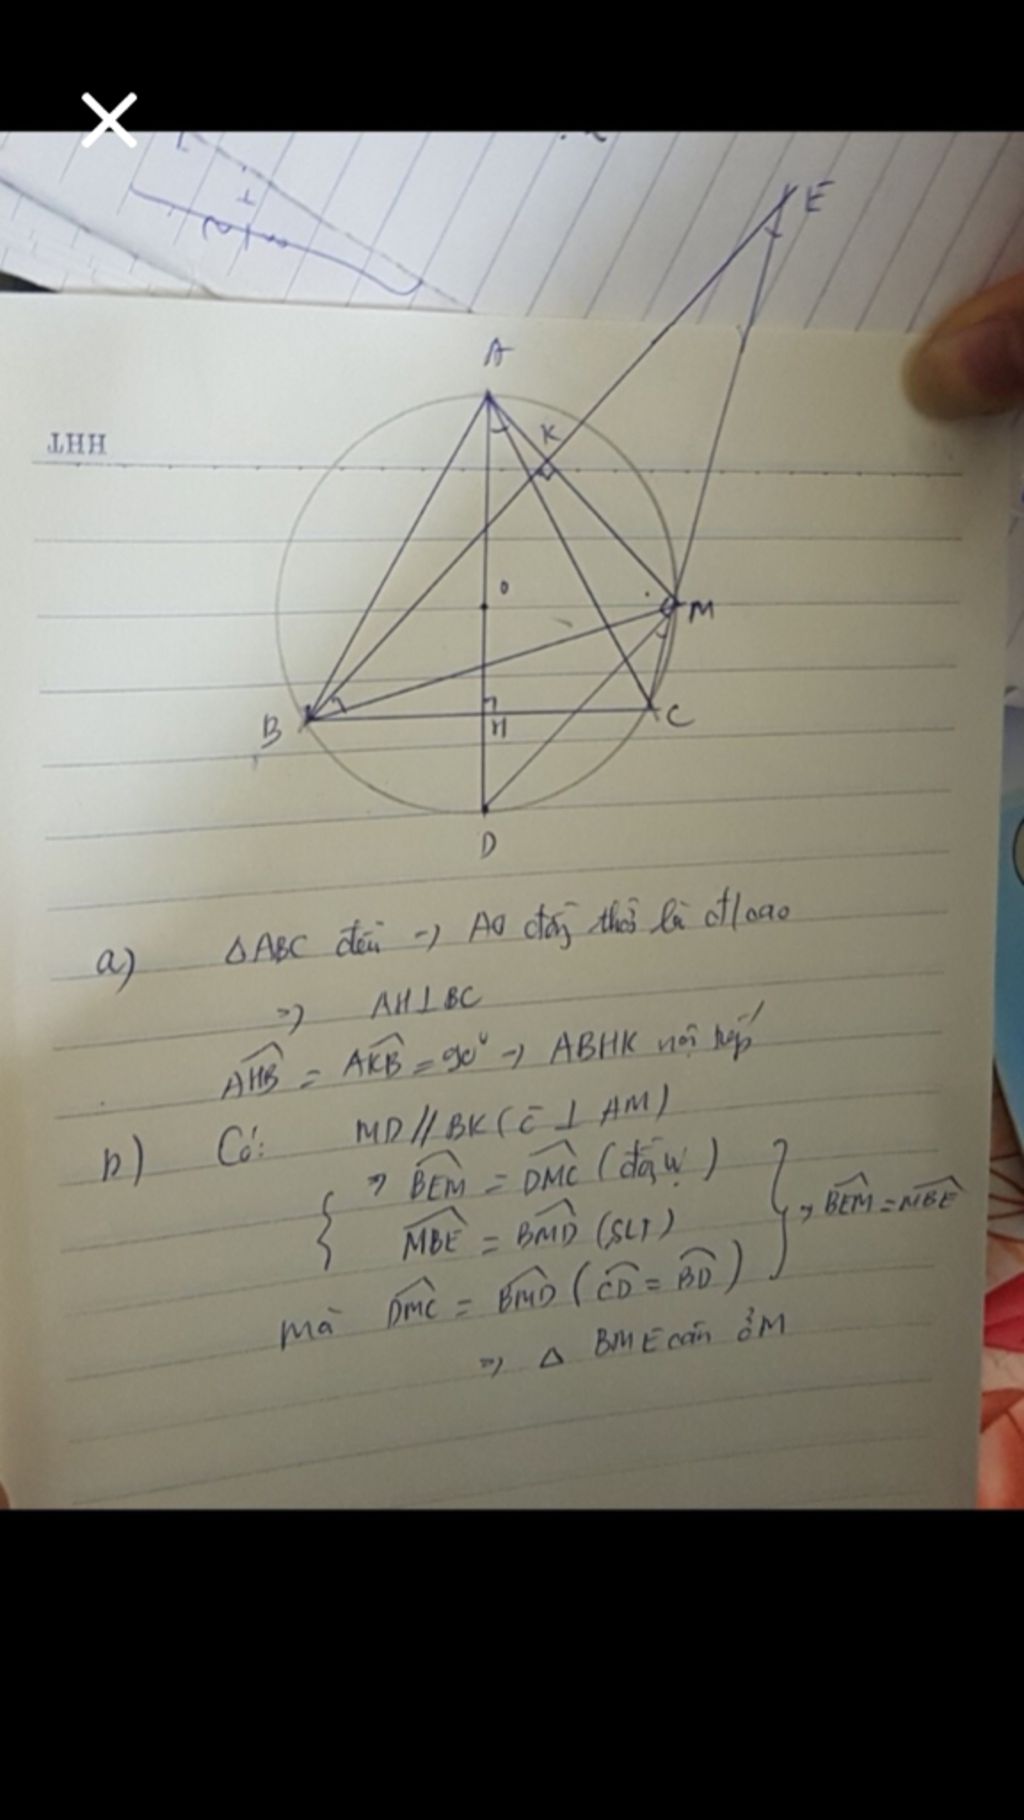 E
A
K
HHT
O
M
B
H
C
D
a) ΔABC đều → AO đồng thời là đ/cao
=> AH⊥BC
AHB = AKB = 90° → ABHK nội tiếp
b) Có: MD // BK (c ⊥ AM)
=> BEM = DMC (đồng vị)
MBE = BMD (SLT)
=> BEM = MBE
mà DMC = BMD (CD = BD)
=> Δ BME cân ở M